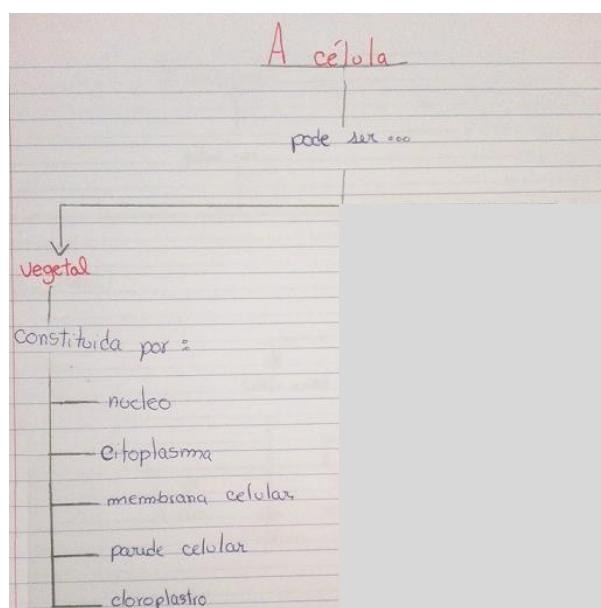 A célula
pode ser ...
vegetal
Constituida por :
nucleo
citoplasma
membrana celular
parede celular
cloroplastro